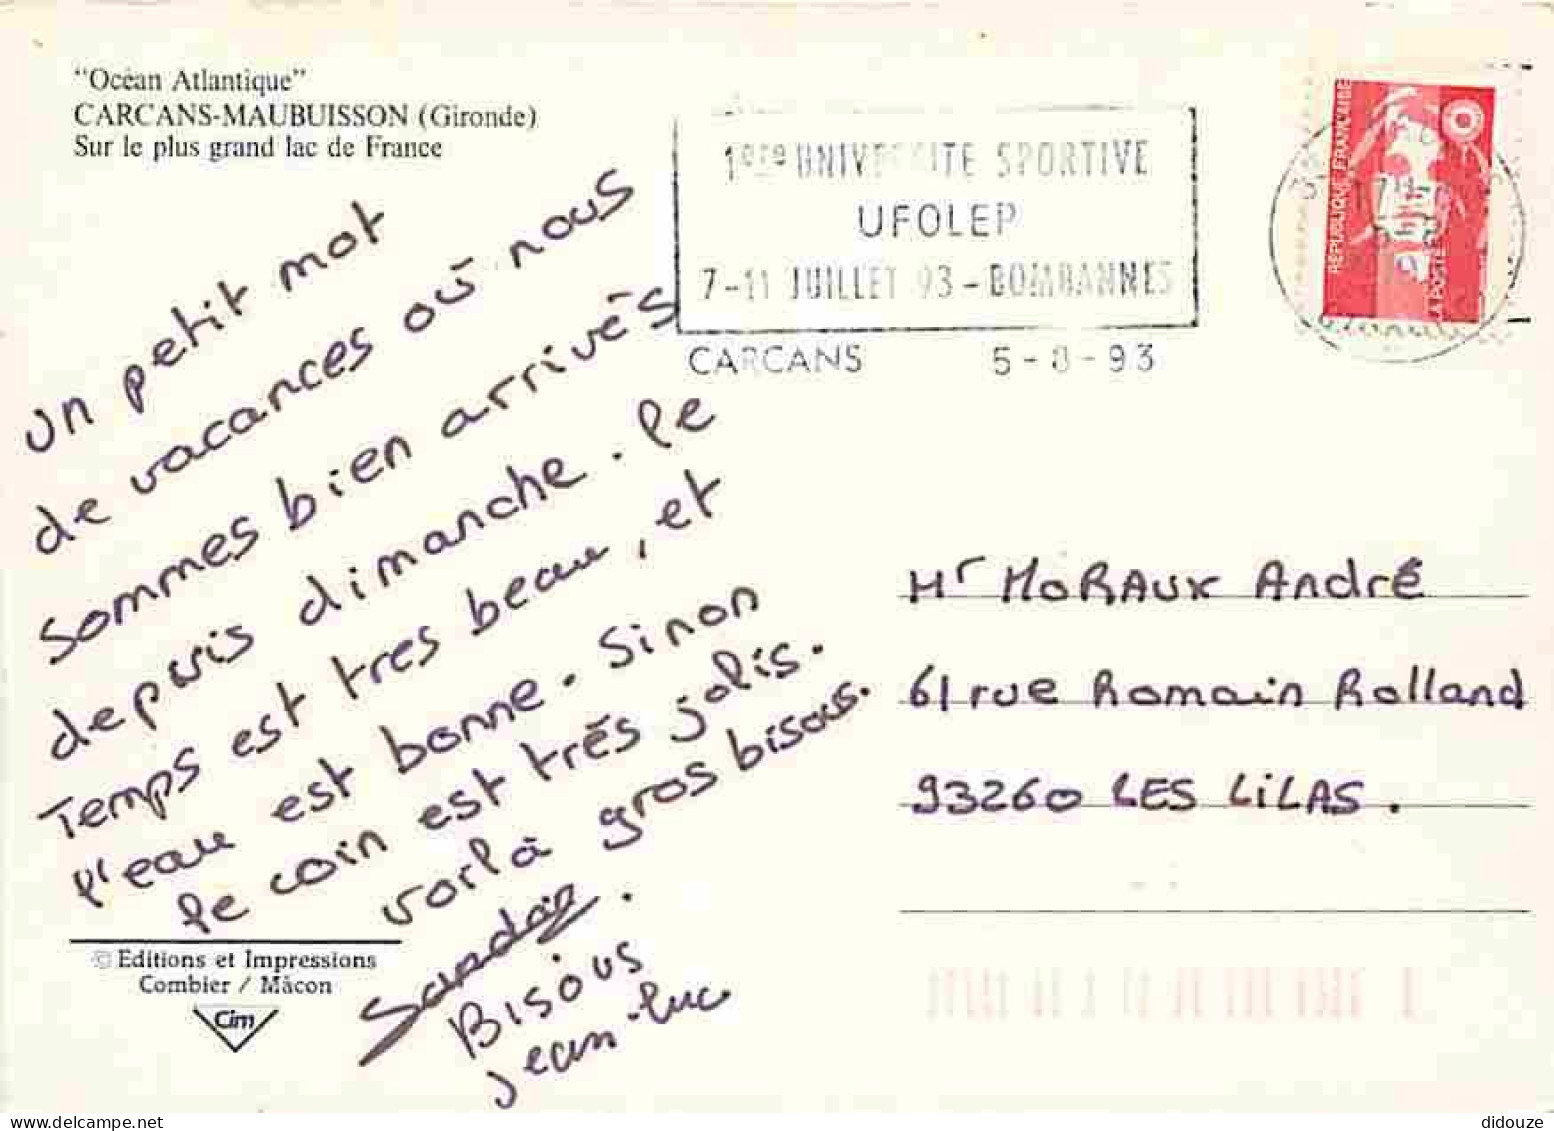 "Océan Atlantique"
CARCANS-MAUBUISSON (Gironde)
Sur le plus grand lac de France
Un petit mot
de vacances où nous
sommes bien arrivés
depuis dimanche. le
Temps est tres beau, et
l'eau est bonne. Sinon
le coin est très jolis.
voilà gros bisous.
Bisous
jean-luc
© Editions et Impressions
Combier / Mâcon
Cim
1ere UNIVERSITE SPORTIVE
UFOLEP
7-11 JUILLET 93 - BOMBANNES
CARCANS 5-8-93
REPUBLIQUE FRANÇAISE
LA POSTE
Mr MORAUX André
61 rue Romain Rolland
93260 LES LiLAS.
didouze